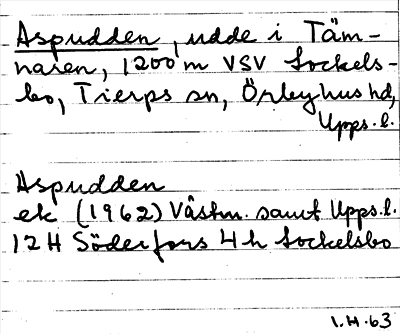 Aspudden, udde i Täm-
naren, 1200 m VSV Sockels-
bo, Tierps sn, Örbyhus hd,
Upps. l.
Aspudden
ek (1962) Västm. samt Upps. l.
12 H Söderfors 4 h Sockelsbo
I.H. 63